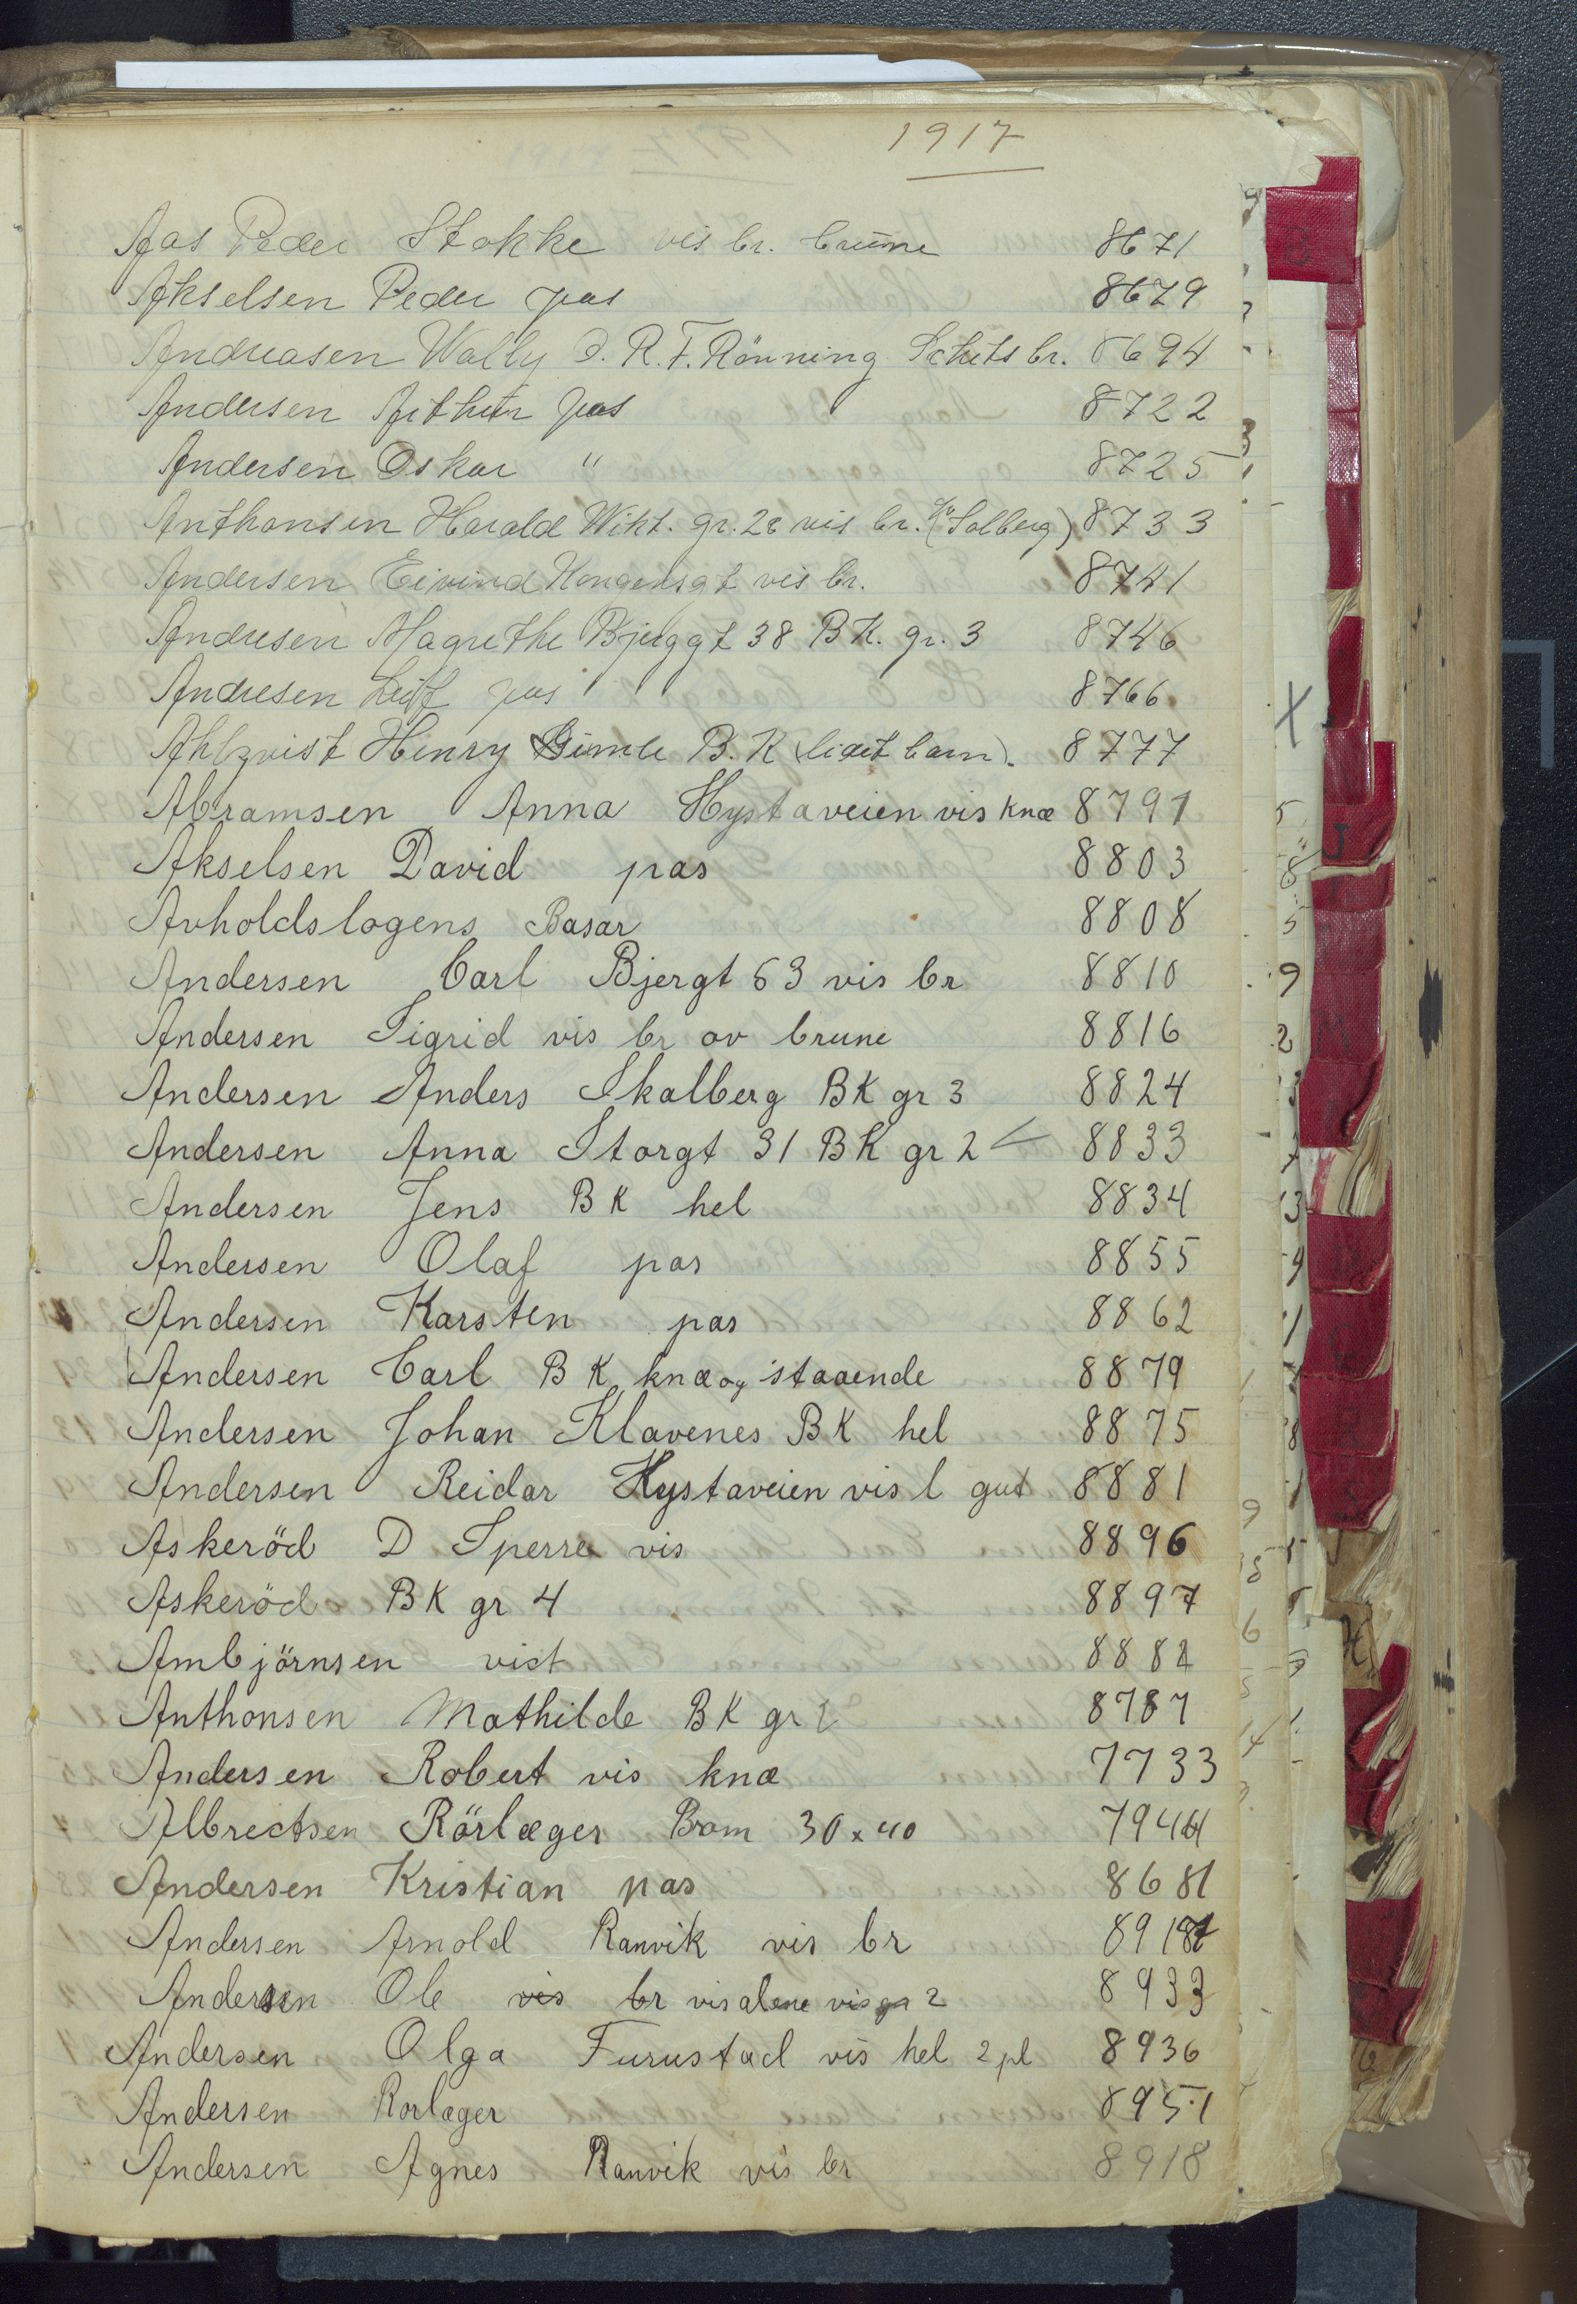 1917
Aas Peder Stokke vis br. brune 8671
Akselsen Peder pas 8679
Andreasen Wally D. R. F. Rönning Schits br. 8694
Andersen Arthur pas 8722
Andersen Oskar " 8725
Anthonsen Harald Wikt. gr. 28 vis br. (Solberg) 8733
Andersen Eivind Kongensgt vis br. 8741
Andresen Magrethe Bjerggt 38 B K. gr. 3 8746
Andresen Leif pas 8766
Ahlqvist Henry Gimle B. K (lidet barn). 8777
Abramsen Anna Hystaveien vis knæ 8791
Akselsen David pas 8803
Avholdslogens Basar 8808
Andersen Carl Bjergt 63 vis br 8810
Andersen Sigrid vis br av brune 8816
Andersen Anders Skalberg BK gr 3 8824
Andersen Anna Storgt 31 BK gr 2 8833
Andersen Jens BK hel 8834
Andersen Olaf pas 8855
Andersen Karsten pas 8862
Andersen Carl B K knæ og staaende 8879
Andersen Johan Klavenes BK hel 8875
Andersen Reidar Hystaveien vis l gut 8881
Askeröd D Sperre vis 8896
Askeröd BK gr 4 8897
Ambjörnsen vist 888
Anthonsen Mathilde BK gr 2 8787
Andersen Robert vis knæ 7733
Albrectsen Rörlæger Brom 30 x 40 794
Andersen Kristian pas 8681
Andersen Arnold Ranvik vis br
Andersen Ole vis br vis alene vis gr 2 8933
Andersen Olga Furustad vis hel 2 pl 8936
Andersen Rorlæger 8951
Andersen Agnes Ranvik vis br 8918